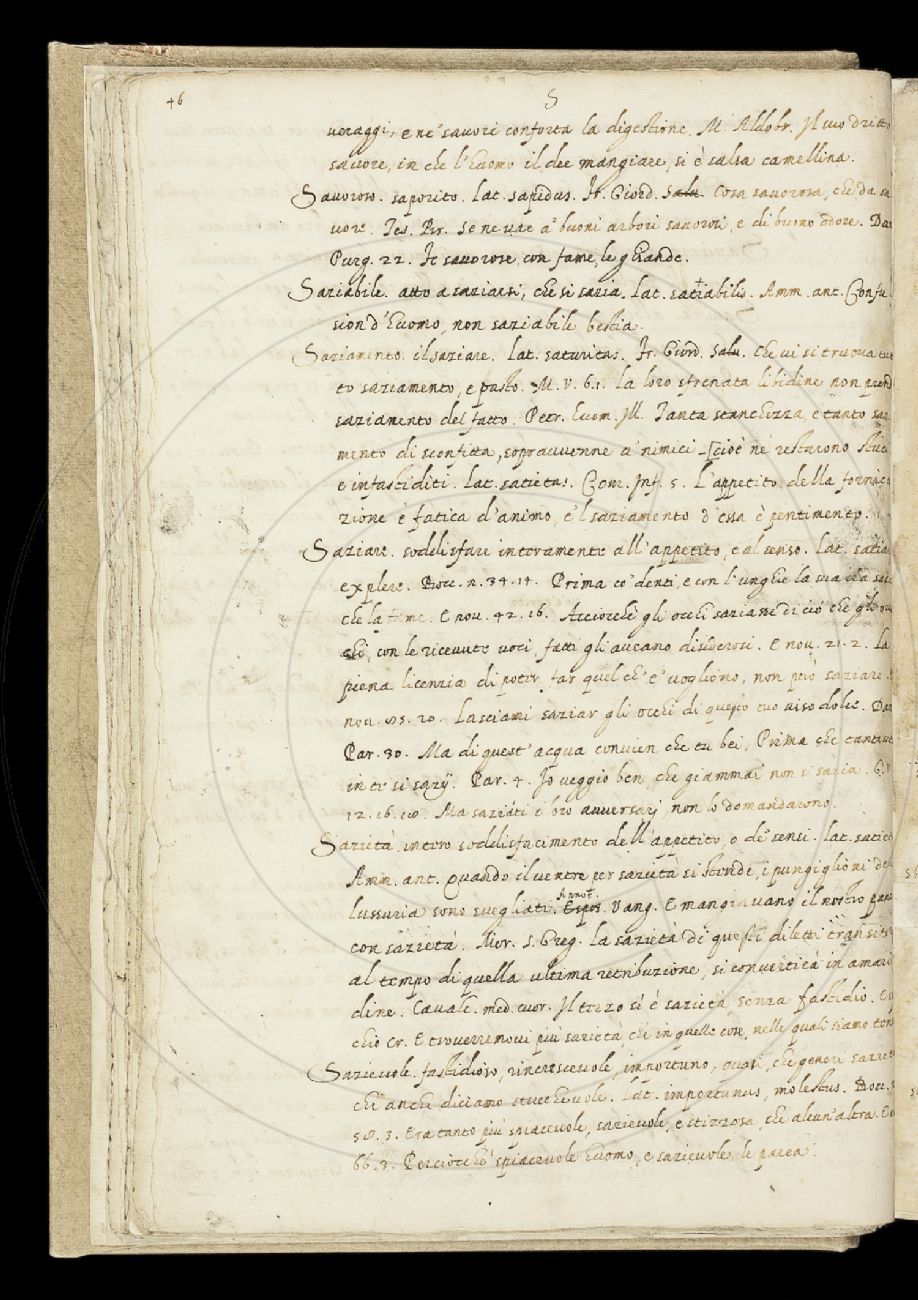 46
S
veraggi, e ne' savori conforta la digestione. M. Aldobr. Il suo dritto
savore, in che l'huomo il dee mangiare, si è salsa camellina.
Savoroso. saporito. Lat. sapidus. Fr. Giord. Salu. Cosa savorosa, che dà sa
vore. Tes. Br. Se ne vae a' buoni arbori savorosi, e di buono odore. Dan
Purg. 22. Fe savorose con fame, le ghiande.
Saziabile. atto a saziarsi, che si sazia. Lat. satiabilis. Amm. ant. Confu
sion d'huomo, non saziabile bestia.
Saziamento. il saziare. Lat. saturitas. Fr. Giord. Salu. Che vi si truova tut
to saziamento, e pasto. M. V. 6. 1. La loro sfrenata libidine non prend
saziamento del fatto. Petr. huom. Ill. Tanta stanchezza, e tanto sazia
mento di sconfitta, sopravvenne a' nimici [cioè ne restarono stuc
e infastiditi. Lat. satietas. Com. Inf. 5. L'appetito della fornica
zione è fatica d'animo, e 'l saziamento d'essa è pentimento.
Saziare. soddisfare interamente all'appetito, e al senso. Lat. satia
explere. Bocc. n. 34. 14. Prima co' denti, e con l'unghie la sua ira sazi
che la fame. E nov. 42. 16. Acciocchè gli occhi saziasse di ciò che gli ore
chi, con le ricevute voci, fatti gli aveano disiderosi. E nov. 21. 2. La
piena licenzia di poter far quel che e' vogliono, non può saziare.
nov. 85. 20. Lasciami saziar gli occhi di questo tuo viso dolce. Dan
Par. 30. Ma di quest' acqua convien che tu bei, Prima che tanta set
in te si sazij. Par. 4. Io veggio ben, che giammai non si sazia. G. V.
12. 16. 18. Ma saziati i loro avversarj non lo domandarono.
Sazietà. intero soddisfacimento dell'appetito, o de' sensi. Lat. satiet
Amm. ant. Quando il ventre per sazietà si stende, i pungiglioni del
lussuria sono svegliati. Annot. Vang. E mangiavano il nostro pane
con sazietà. Mor. S. Greg. La sazietà di questi diletti transito
al tempo di quella ultima retribuzione, si convertirà in amari
dine. Cavalc. med. cuor. Il terzo si è sazietà senza fastidio. Co
chio Cr. E troverremovi più sazietà, che in quelle cose, nelle quali siamo ten
Sazievole. fastidioso, rincrescevole, importuno, quasi, che generi saziet
che anche diciamo stucchevole. Lat. importunus, molestus. Bocc.
58. 3. Era tanto più spiacevole, sazievole, e stizzosa, che alcun'altra. E n
66. 3. Perciocchè spiacevole huomo, e sazievole le parea.